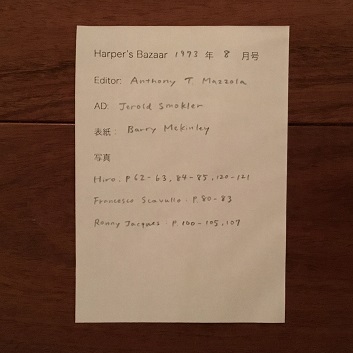 Harper's Bazaar 1973 年 8 月号
Editor: Anthony T Mazzola
AD: Jerold Smokler
表紙: Barry McKinley
写真
Hiro. P 62-63, 84-85, 120-121
Francesco Scavullo. P 80-83
Ronny Jacques P 100-105, 107